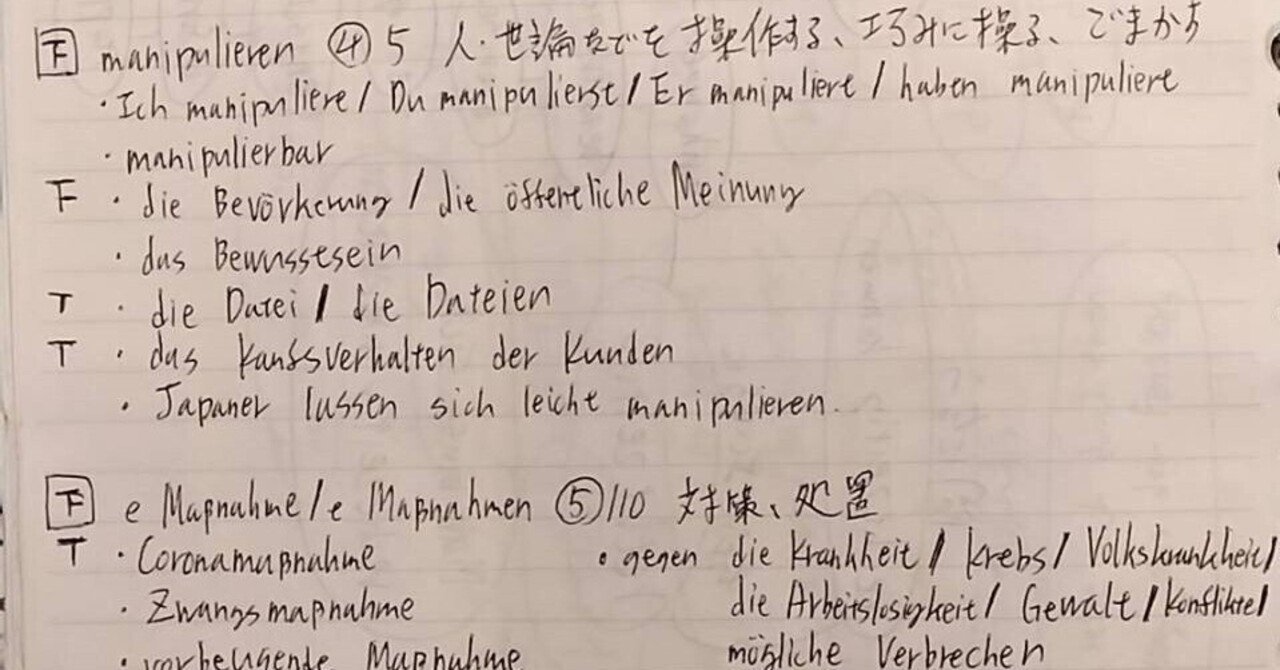 F manipulieren ④5 人・世論などを操作する、巧みに操る、ごまかす
・Ich manipuliere / Du manipulierst / Er manipuliert / haben manipuliert
・manipulierbar
F ・die Bevörkerung / die öffentliche Meinung
・das Bewusstsein
T ・die Datei / die Dateien
T ・das Kaufsverhalten der Kunden
・Japaner lassen sich leicht manipulieren.
F e Maßnahme/e Maßnahmen ⑤/10 対策、処置
T ・Coronamaßnahme
・Zwangsmaßnahme
・vorbeugende Maßnahme
・gegen die Krankheit / Krebs / Volkskrankheit /
die Arbeitslosigkeit / Gewalt / Konflikte /
mögliche Verbrechen